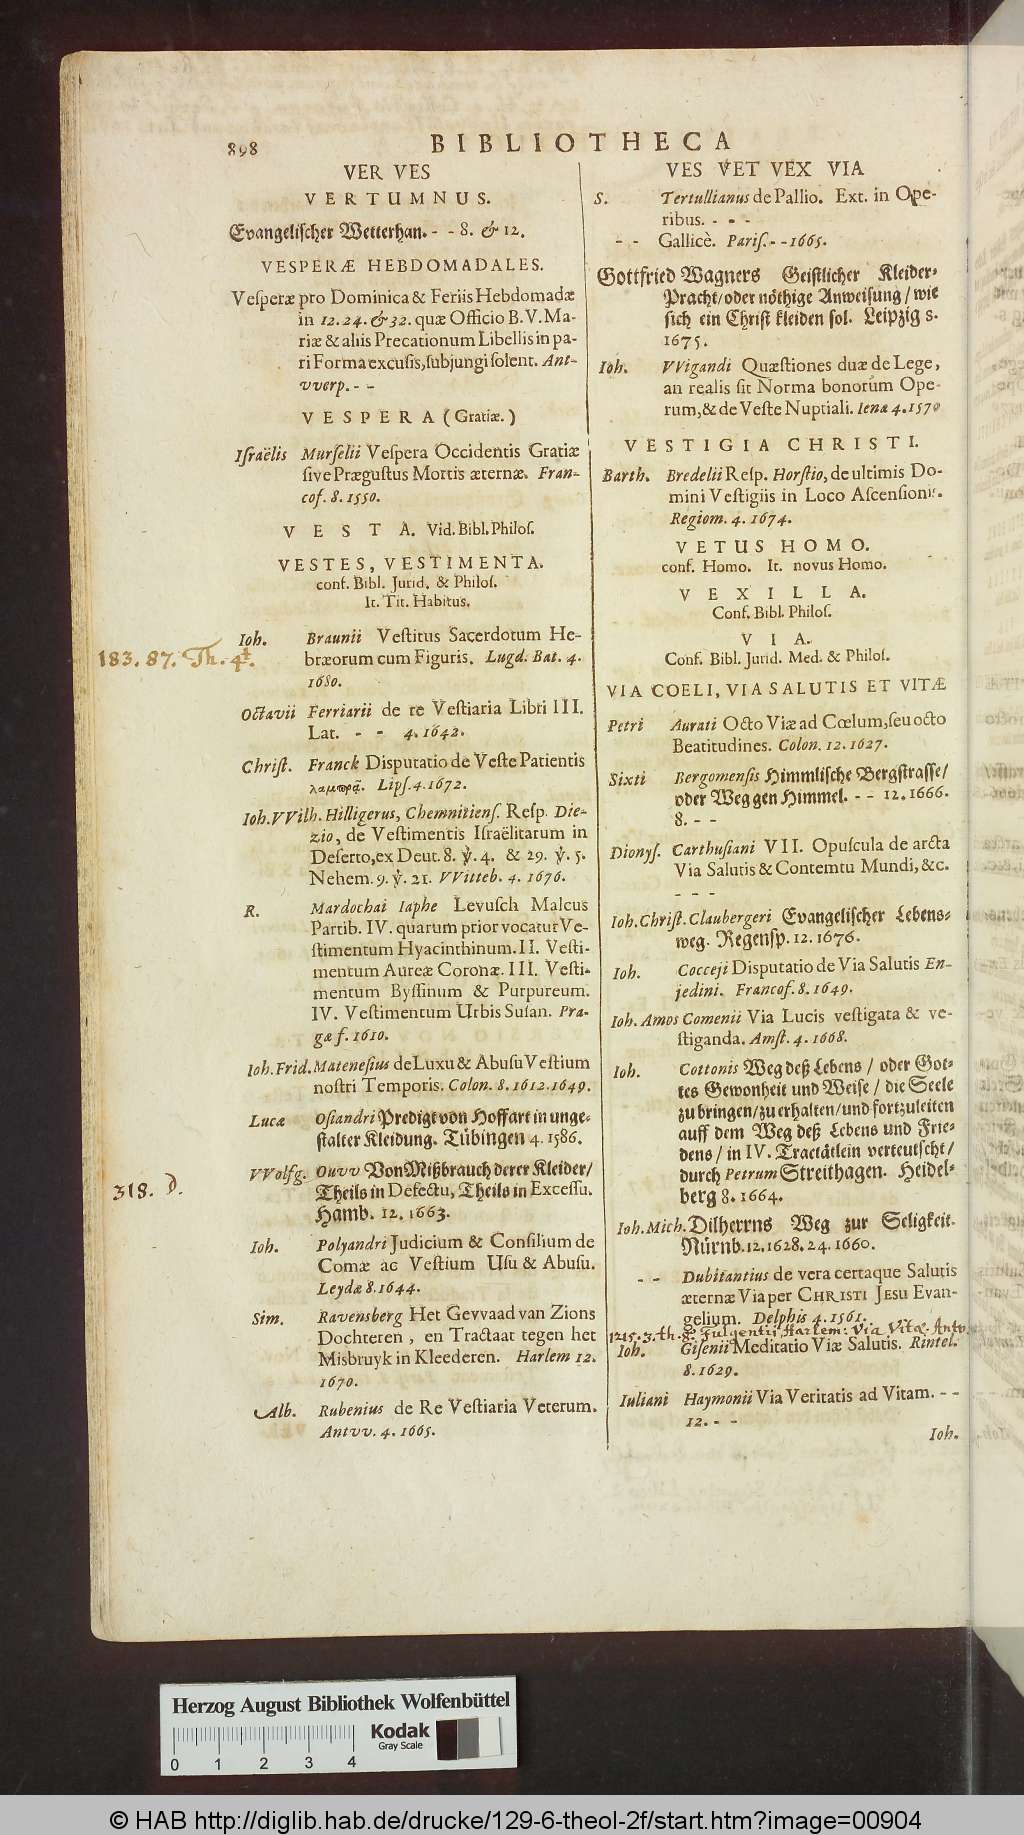 898 BIBLIOTHECA
VER VES
VERTUMNUS.
Evangeliſcher Wetterhan. - - 8. & 12.
VESPERÆ HEBDOMADALES.
Veſperæ pro Dominica & Feriis Hebdomadæ
in 12. 24. & 32. quæ Officio B. V. Ma-
riæ & aliis Precationum Libellis in pa-
ri Forma excuſis, ſubjungi ſolent. Ant-
vverp. - -
VESPERA (Gratiæ.)
Iſraëlis Murſelii Veſpera Occidentis Gratiæ
ſive Prægustus Mortis æternæ. Fran-
cof. 8. 1550.
VESTA. Vid. Bibl. Philoſ.
VESTES, VESTIMENTA.
conf. Bibl. Jurid. & Philoſ.
It. Tit. Habitus.
Ioh. Braunii Veſtitus Sacerdotum He-
183. 87. Th. 4t. bræorum cum Figuris. Lugd. Bat. 4.
1680.
Octavii Ferriarii de re Veſtiaria Libri III.
Lat. - - 4. 1642.
Chriſt. Franck Disputatio de Veſte Patientis
Lipſ. 4. 1672.
Ioh. VVilh. Hilligerus, Chemnitienſ. Reſp. Die-
zio, de Veſtimentis Iſraëlitarum in
Deſerto, ex Deut. 8. ℣. 4. & 29. ℣. 5.
Nehem. 9. ℣. 21. VVitteb. 4. 1676.
R. Mardochai Iaphe Levuſch Malcus
Partib. IV. quarum prior vocatur Ve-
ſtimentum Hyacinthinum. II. Veſti-
mentum Aureæ Coronæ. III. Veſti-
mentum Byſſinum & Purpureum.
IV. Veſtimentum Urbis Suſan. Pra-
gæ f. 1610.
Ioh. Frid. Matenesius de Luxu & Abuſu Veſtium
nostri Temporis. Colon. 8. 1612. 1649.
Lucæ Oſiandri Predigt von Hoffart in unge-
ſtalter Kleidung. Tübingen 4. 1586.
VVolfg. Ouvv Von Mißbrauch derer Kleider/
318. D. Theils in Defectu, Theils in Exceſſu.
Hamb. 12. 1663.
Ioh. Polyandri Judicium & Conſilium de
Comæ ac Veſtium Uſu & Abuſu.
Leydæ 8. 1644.
Sim. Ravensberg Het Gevvaad van Zions
Dochteren, en Tractaat tegen het
Misbruyk in Kleederen. Harlem 12.
1670.
Alb. Rubenius de Re Veſtiaria Veterum.
Antvv. 4. 1665.
VES VET VEX VIA
S. Tertullianus de Pallio. Ext. in Ope-
ribus. - - -
- - Gallicè. Pariſ. - - 1665.
Gottfried Wagners Geiſtlicher Kleider-
Pracht/ oder nöthige Anweiſung/ wie
ſich ein Chriſt kleiden ſol. Leipzig 8.
1675.
Ioh. VVigandi Quæſtiones duæ de Lege,
an realis ſit Norma bonorum Ope-
rum, & de Veſte Nuptiali. Ienæ 4. 1570
VESTIGIA CHRISTI.
Barth. Bredelii Reſp. Horſtio, de ultimis Do-
mini Veſtigiis in Loco Aſcenſionis.
Regiom. 4. 1674.
VETUS HOMO.
conf. Homo. It. novus Homo.
VEXILLA.
Conf. Bibl. Philoſ.
VIA.
Conf. Bibl. Jurid. Med. & Philoſ.
VIA COELI, VIA SALUTIS ET VITÆ
Petri Aurati Octo Viæ ad Cœlum, ſeu octo
Beatitudines. Colon. 12. 1627.
Sixti Bergomenſis Himmliſche Bergſtraſſe/
oder Weg gen Himmel. - - 12. 1666.
8. - -
Dionyſ. Carthuſiani VII. Opuſcula de arcta
Via Salutis & Contemtu Mundi, &c.
- - -
Ioh. Chriſt. Claubergeri Evangeliſcher Lebens-
weg. Regenſp. 12. 1676.
Ioh. Cocceji Diſputatio de Via Salutis En-
jedini. Francof. 8. 1649.
Ioh. Amos Comenii Via Lucis veſtigata & ve-
ſtiganda. Amſt. 4. 1668.
Ioh. Cottonis Weg deß Lebens / oder Got-
tes Gewonheit und Weiſe / die Seele
zu bringen/ zu erhalten/ und fortzuleiten
auff dem Weg deß Lebens und Frie-
dens / in IV. Tractätlein verteutſcht/
durch Petrum Streithagen. Heidel-
berg 8. 1664.
Ioh. Mich. Dilherrns Weg zur Seligkeit.
Nürnb. 12. 1628. 24. 1660.
- - Dubitantius de vera certaque Salutis
æternæ Via per CHRISTI JESU Evan-
gelium. Delphis 4. 1561.
1215. 3. th. 8. Fulgentii Harlem: Via Vitæ. Antv.
Ioh. Giſenii Meditatio Viæ Salutis. Rintel.
8. 1629.
Iuliani Haymonii Via Veritatis ad Vitam. - -
12. - -
Ioh.
Herzog August Bibliothek Wolfenbüttel
Kodak
Gray Scale
0 1 2 3 4
© HAB http://diglib.hab.de/drucke/129-6-theol-2f/start.htm?image=00904